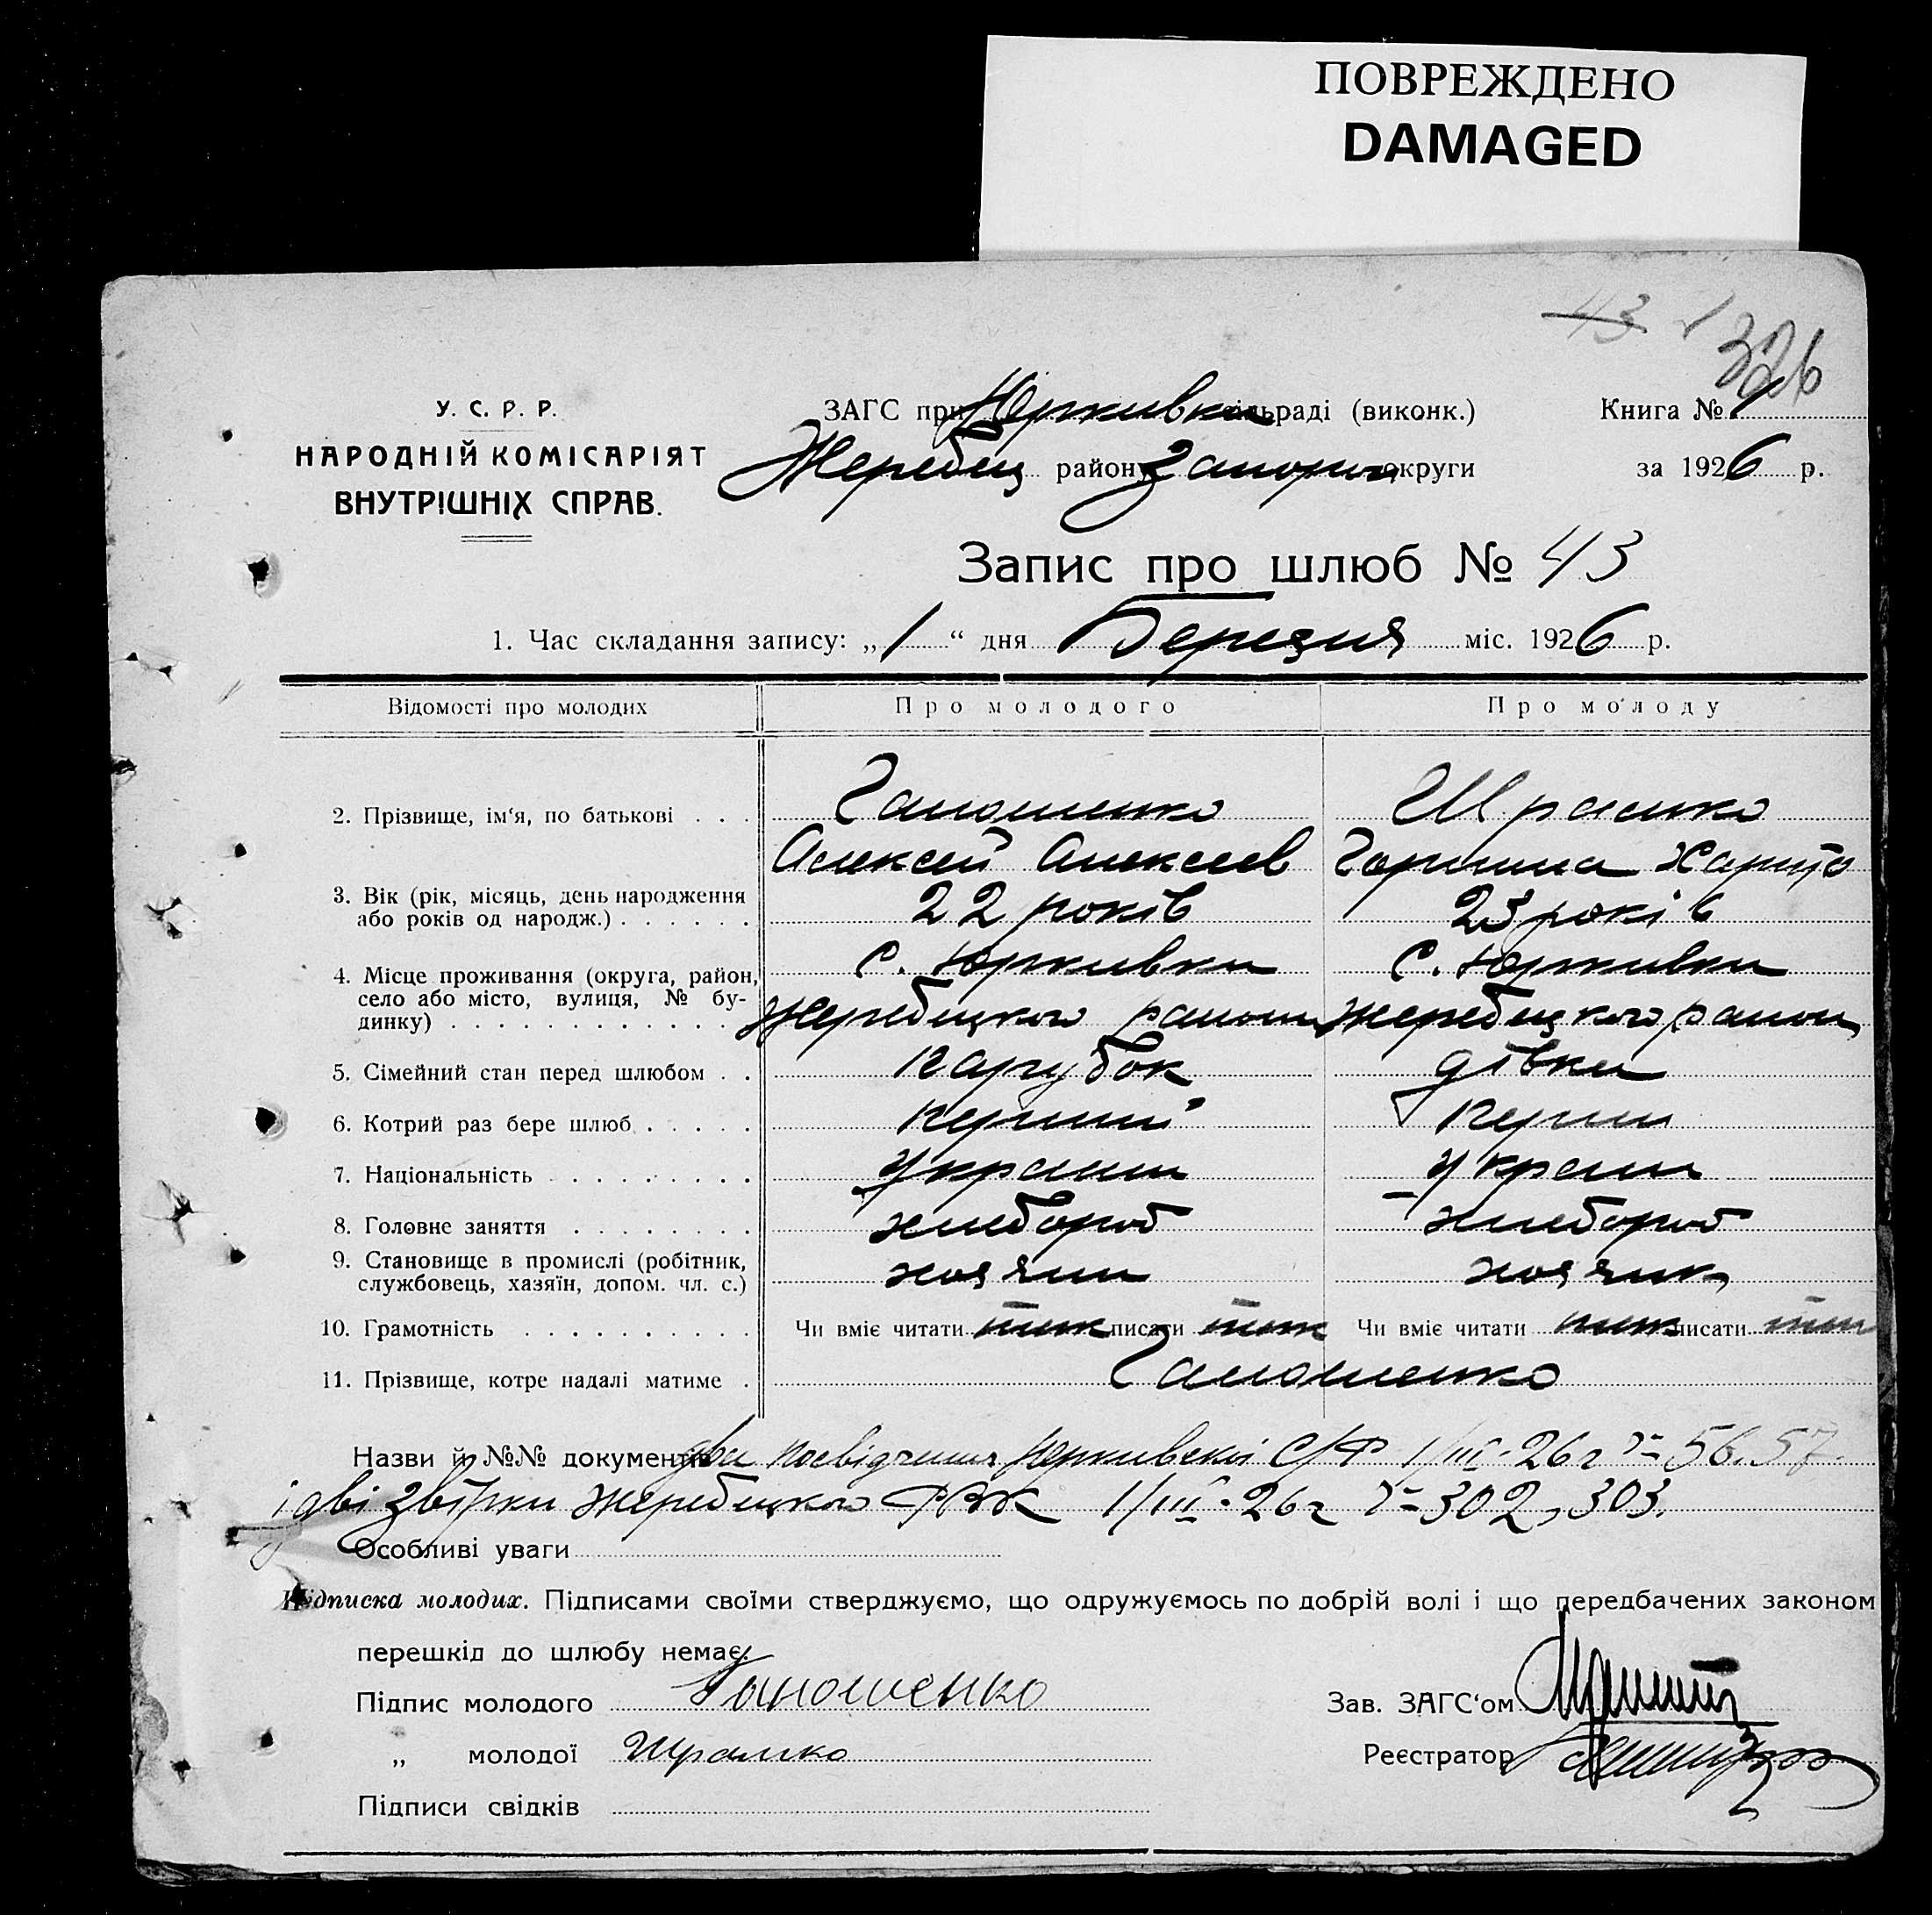 ПОВРЕЖДЕНО
DAMAGED
43 326
У. С. Р. Р.
НАРОДНІЙ КОМІСАРІЯТ
ВНУТРІШНІХ СПРАВ.
ЗАГС при Юркивка сільраді (виконк.) Книга № 1
Жеребец району Запорож округи за 1926 р.
Запис про шлюб № 43
1. Час складання запису: „1“ дня Березня міс. 1926 р.
Відомості про молодих Про молодого Про молоду
2. Прізвище, ім‘я, по батькові . . . Ганошенко Шрамко
Алексей Алексеев Горпина Харито
3. Вік (рік, місяць, день народження
або років од народж.) . . . . . . 22 років 23 років
4. Місце проживання (округа, район, с. Юркивки с. Юркивки
село або місто, вулиця, № бу-
динку) . . . . . . . . . . . . . Жеребецкого района Жеребецкого района
5. Сімейний стан перед шлюбом . . парубок дівка
6. Котрий раз бере шлюб . . . . . перший перш
7. Національність . . . . . . . . україн україн
8. Головне заняття . . . . . . . . хлебороб хлебороб
9. Становище в промислі (робітник,
службовець, хазяїн, допом. чл. с.) хозяин хозяик
10. Грамотність . . . . . . . . . . Чи вміє читати писати Чи вміє читати писати
11. Прізвище, котре надалі матиме . Ганошенко
Назви й №№ документів два посвідчення Юркивскої С/Р 1/III-26 г № 56.57.
і дві Жеребецкого РВК 1/III-26 г № 302, 303.
Особливі уваги
Підписка молодих. Підписами своїми стверджуємо, що одружуємось по добрій волі і що передбачених законом
перешкід до шлюбу немає.
Підпис молодого Ганошенко Зав. ЗАГС‘ом
„ молодої Шрамко Реєстратор
Підписи свідків